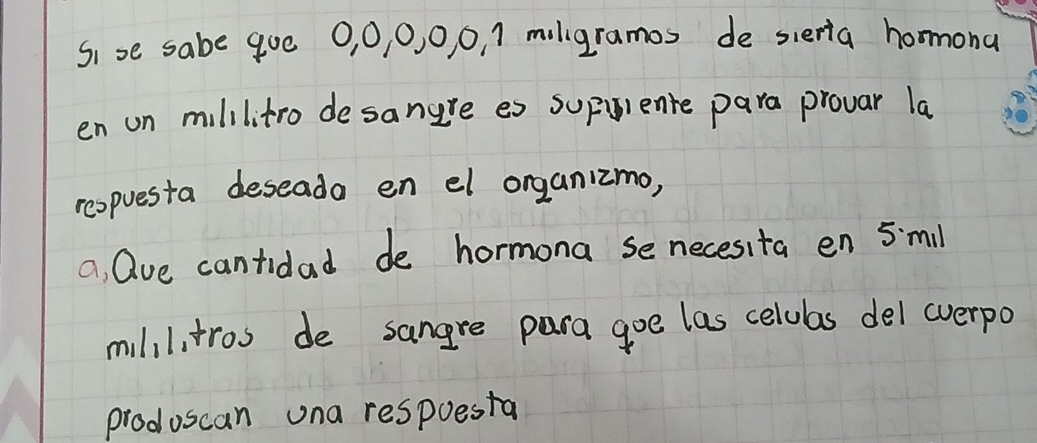 Si se sabe que 0,0,0,0,0,1 miligramos de sierta hormona
en un mililitro de sangre es sufisiente para provar la
respuesta deseada en el organizmo,
a, Que cantidad de hormona se necesita en 5.mil
mililitros de sangre para que las celulas del cuerpo
produscan una respuesta